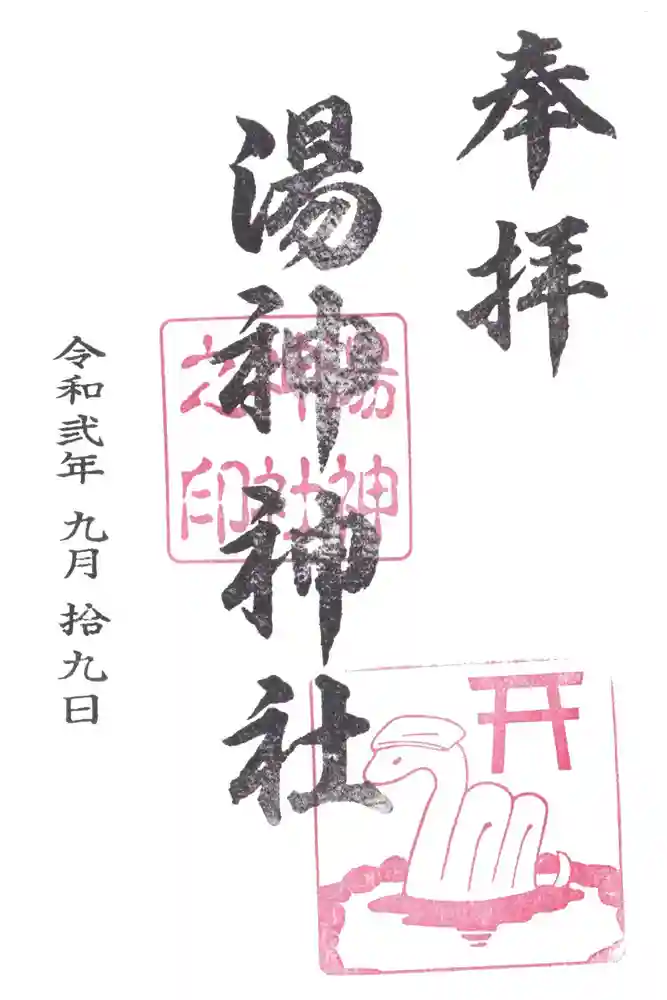 奉拝
湯神神社
湯神
神社
之印
令和弐年 九月 拾九日